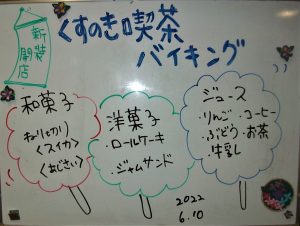 新装
開店
くすのき喫茶
バイキング
和菓子
ねりきり
〈スイカ〉
〈あじさい〉
洋菓子
・ロールケーキ
・ジャムサンド
ジュース
・りんご ・コーヒー
・ぶどう ・お茶
・牛乳
2022
6.10